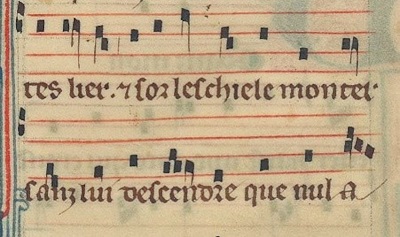 tes lier. ⁊ sor leschiele monter
sanz lui descendre que nul a